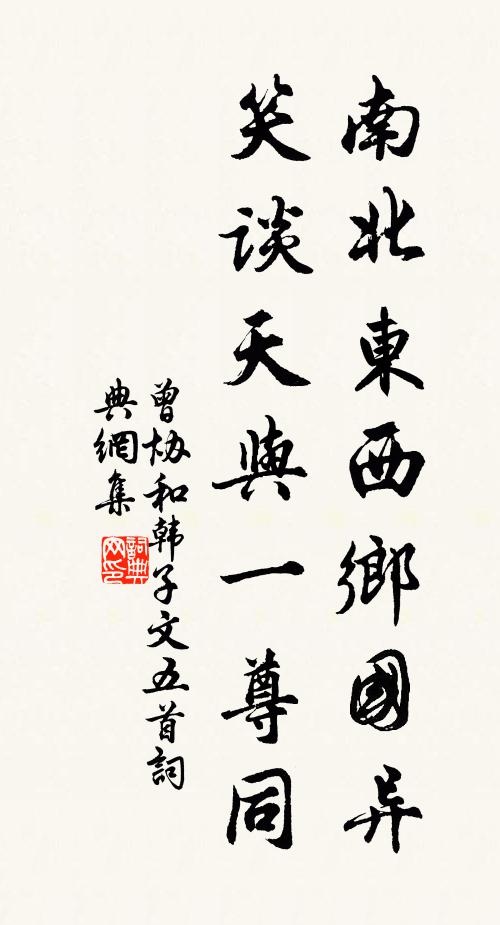 南北東西鄉國异
笑談天與一尊同
曾协和韩子文五首詞
典網集
詞典网印